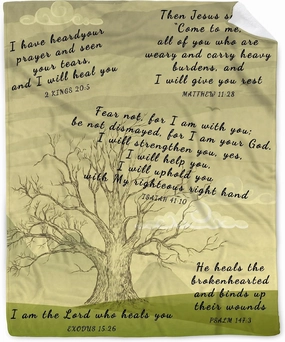 I have heardyour
prayer and seen
your tears,
and I will heal you
2 KINGS 20:5
Then Jesus s
"Come to me,
all of you who are
weary and carry heavy
burdens, and
I will give you rest
MATTHEW 11:28
Fear not, for I am with you;
be not dismayed, for I am your God.
I will strengthen you, yes,
I will help you,
I will uphold you
with My righteous right hand
ISAIAH 41:10
He heals the
brokenhearted
and binds up
their wounds
PSALM 147:3
I am the Lord who heals you
EXODUS 15:26